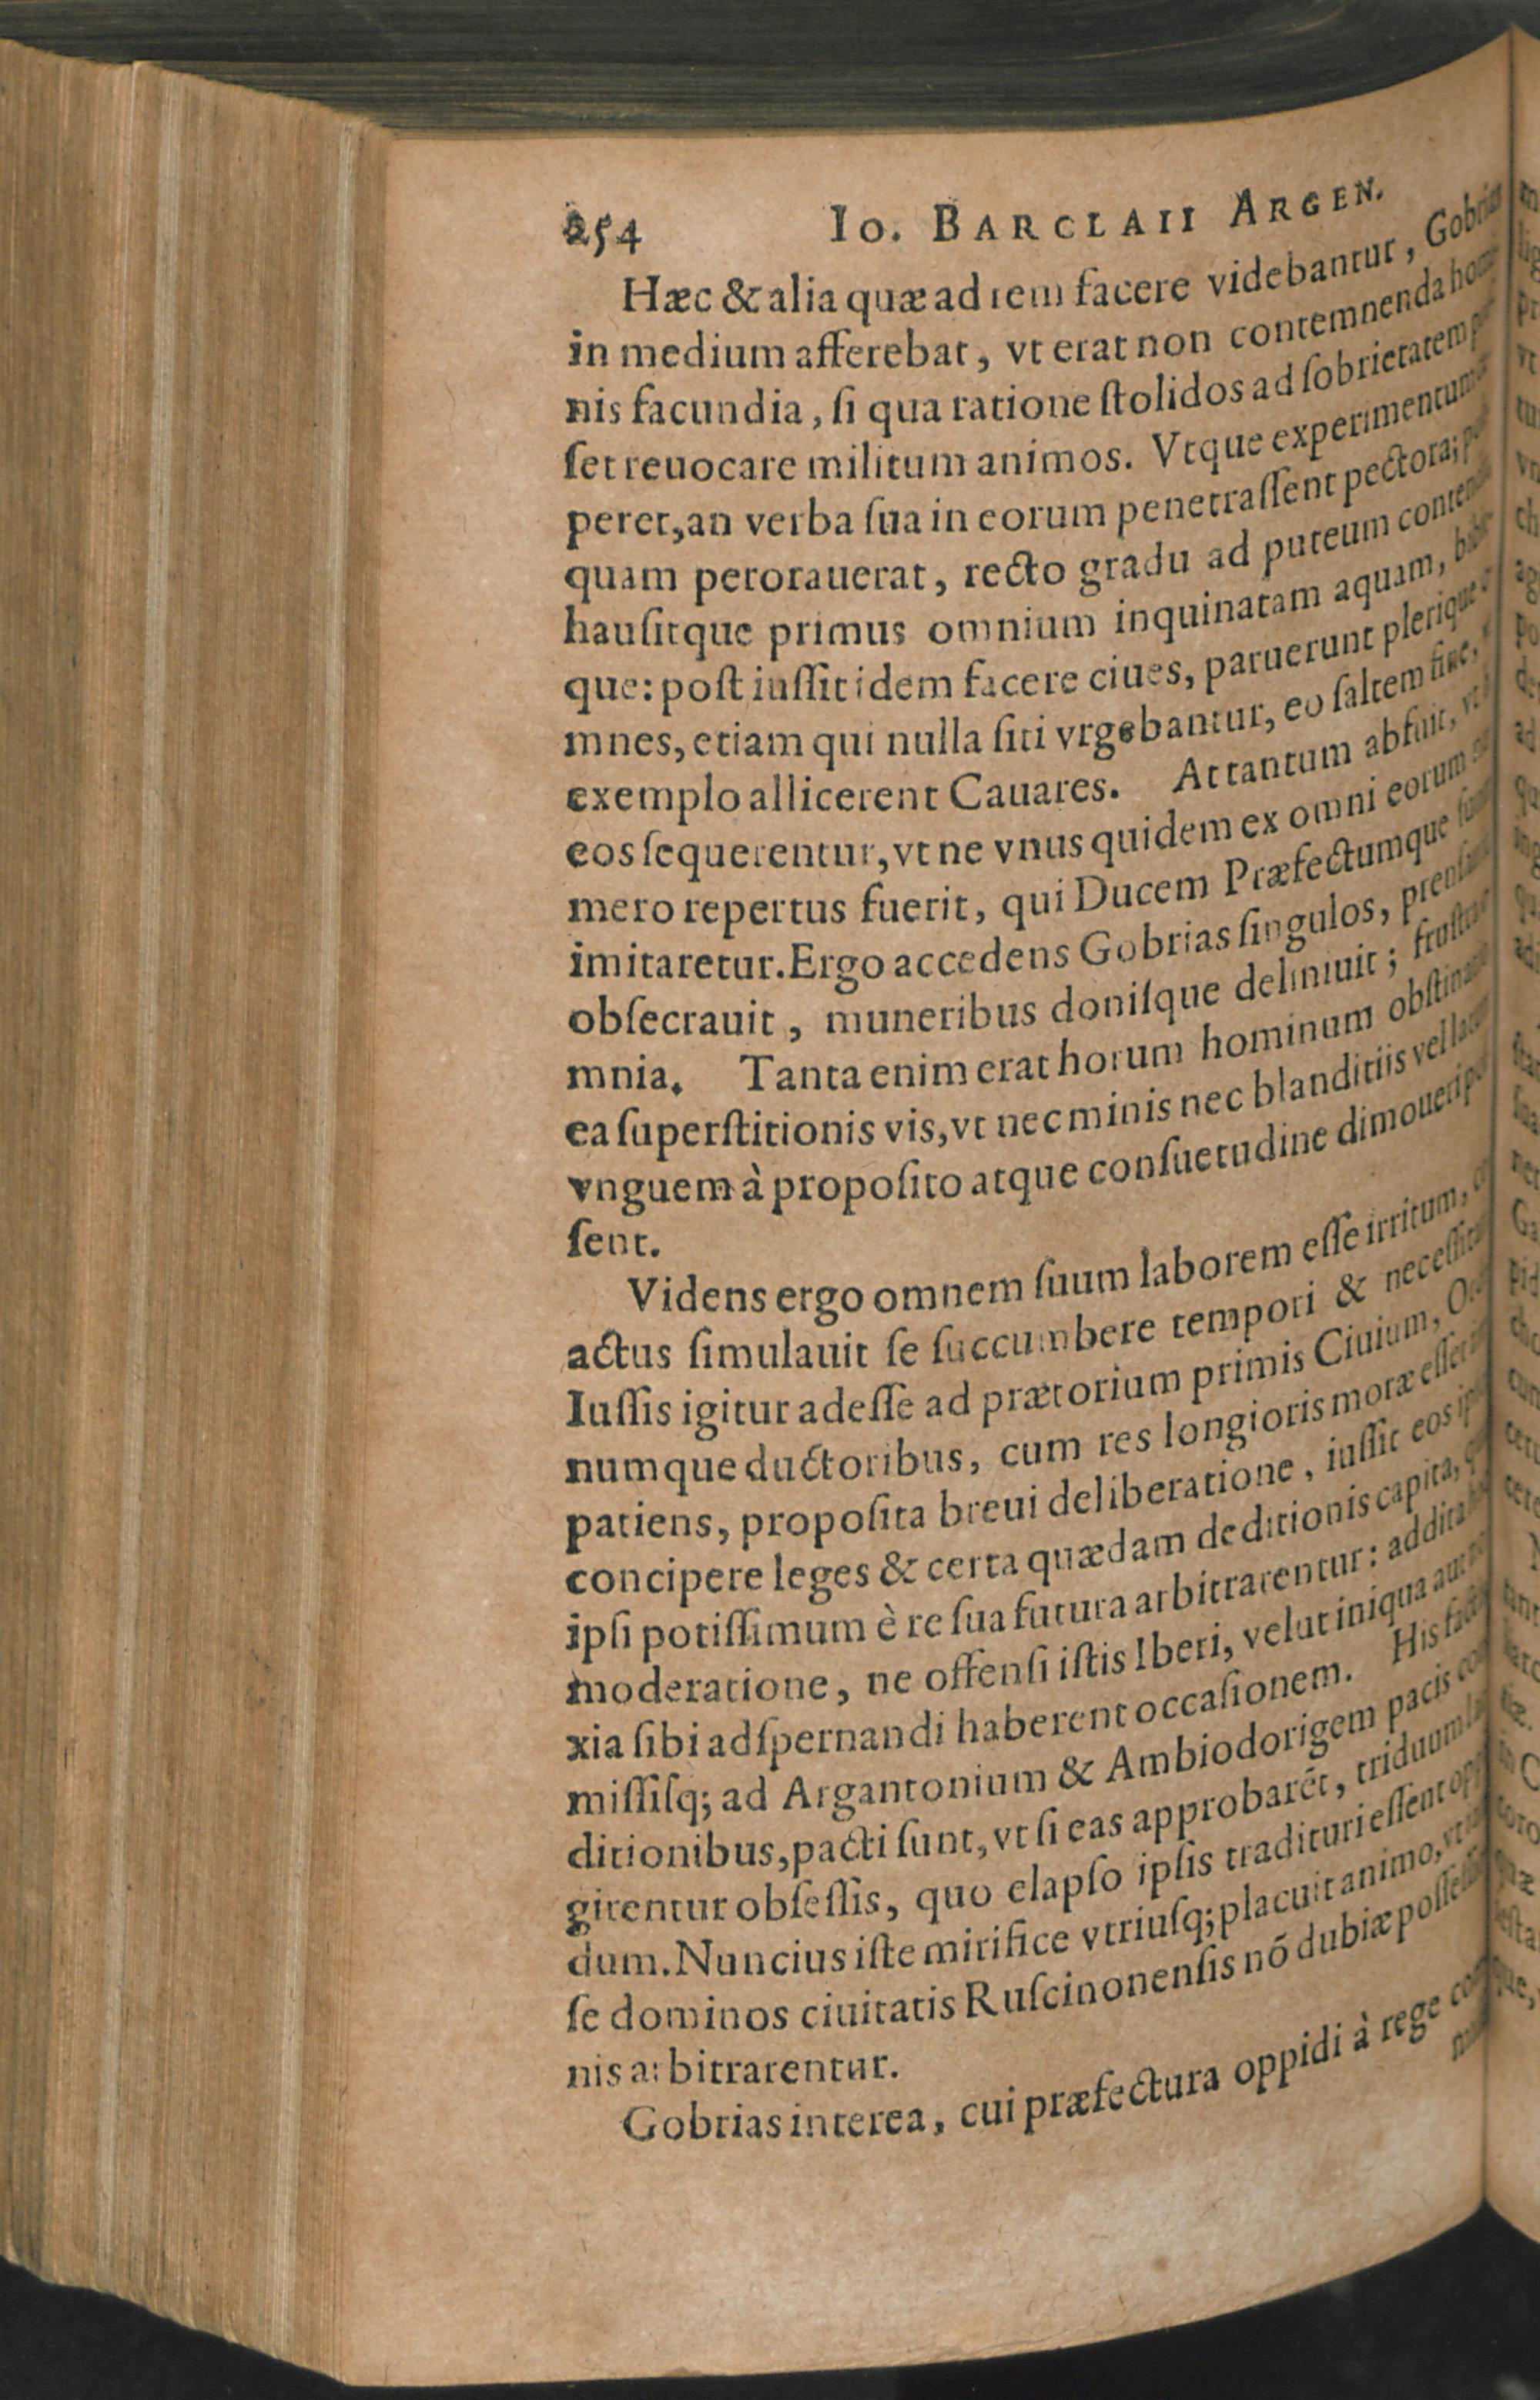 254 Io. BARCLAII ARGEN.
Hæc & alia quæ ad rem facere videbantur, Gobrias
in medium afferebat, vt erat non contemnenda
nis facundia, ſi qua ratione ſtolidos ad ſobrietatem
ſet reuocare militum animos. Vtque experimentum
peret, an verba ſua in eorum penetraſſent pectora;
quam perorauerat, recto gradu ad puteum
hauſitque primus omnium inquinatam aquam,
que: poſt iuſſit idem facere ciues, paruerunt plerique
mnes, etiam qui nulla ſiti vrgebantur, eo ſaltem fine,
exemplo allicerent Cauares. At tantum abfuit,
eos ſequerentur, vt ne vnus quidem ex omni eorum
mero repertus fuerit, qui Ducem Præfectumque
imitaretur. Ergo accedens Gobrias ſingulos,
obſecrauit, muneribus doniſque deliniuit;
mnia. Tanta enim erat horum hominum
ea ſuperſtitionis vis, vt nec minis nec blanditiis vel
vnguem à propoſito atque conſuetudine dimoueri
ſent.
Videns ergo omnem ſuum laborem eſſe irritum,
actus ſimulauit ſe ſuccumbere tempori &
Iuſſis igitur adeſſe ad prætorium primis Ciuium,
numque ductoribus, cum res longioris moræ
patiens, propoſita breui deliberatione, iuſſit eos
concipere leges & certa quædam deditionis capita,
ipſi potiſſimum è re ſua futura arbitrarentur:
moderatione, ne offenſi iſtis Iberi, velut iniqua aut
xia ſibi adſpernandi haberent occaſionem. His
miſſiſq; ad Argantonium & Ambiodorigem pacis
ditionibus, pacti ſunt, vt ſi eas approbarēt, triduum
girentur obſeſſis, quo elapſo ipſis tradituri eſſent
dum. Nuncius iſte mirifice vtriuſq; placuit animo,
ſe dominos ciuitatis Ruſcinonenſis nō dubiæ
nis arbitrarentur.
Gobrias interea, cui præfectura oppidi à rege